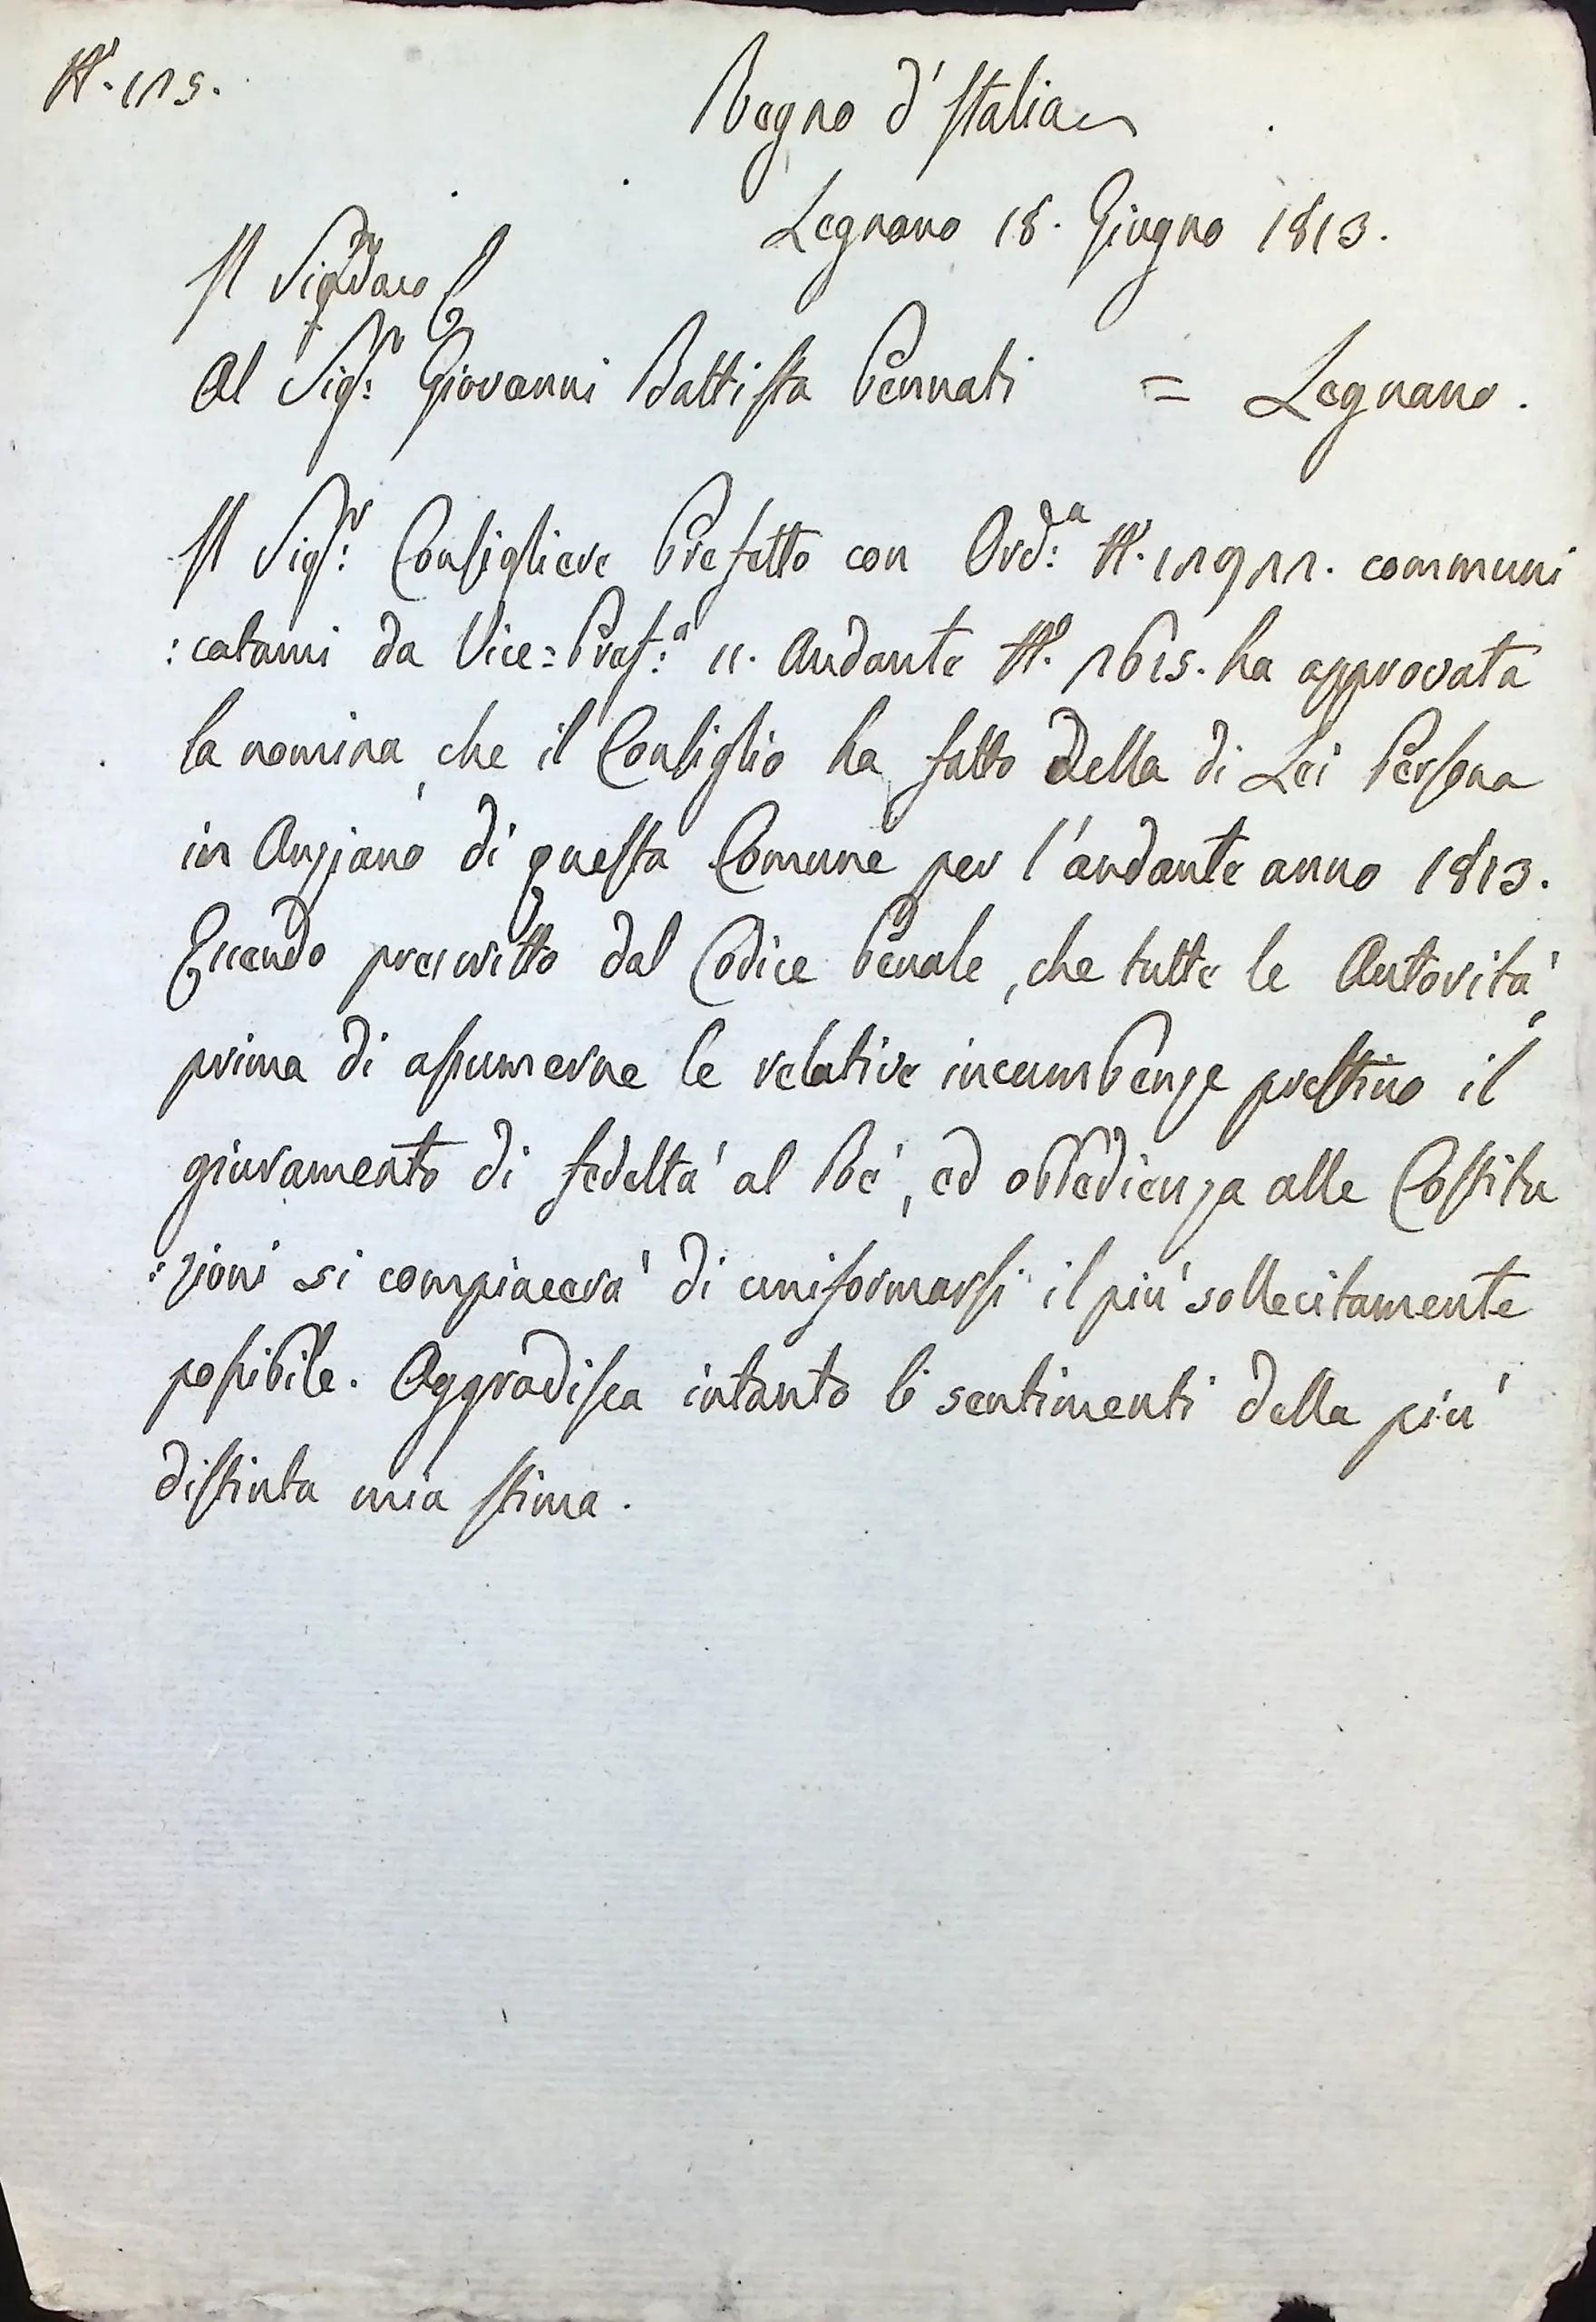 N.° 125.
Regno d'Italia
Legnano 18. Giugno 1813.
Il Sindaco
Al Sig.r Giovanni Battista Pennati = Legnano.
Il Sig.r Consigliere Prefetto con Ord.a N.° 12922. communi
:catami da Vice=Pref.a 11. Andante N.° 2615. ha approvata
la nomina, che il Consiglio ha fatto della di Lei Persona
in Anziano di questa Comune per l'andante anno 1813.
Essendo prescritto dal Codice Penale, che tutte le Autorità,
prima di assumerne le relative incumbenze prestino il
giuramento di fedeltà al Rè, ed obbedienza alle Costitu
:zioni si compiacerà di uniformarsi il più sollecitamente
possibile. Aggradisca intanto li sentimenti della più
distinta mia stima.